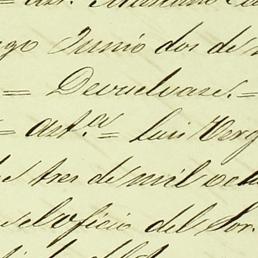 go Junio dos de
= Devuelvase. =
= art.a = Luis Verg
s tres de mil och
el oficio del Sor.